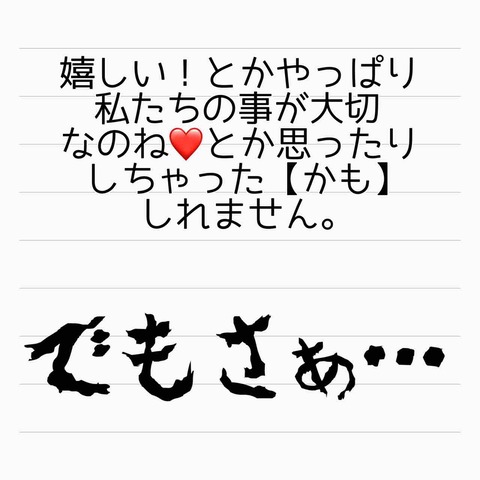 嬉しい！とかやっぱり
私たちの事が大切
なのね❤️とか思ったり
しちゃった【かも】
しれません。
でもさぁ…